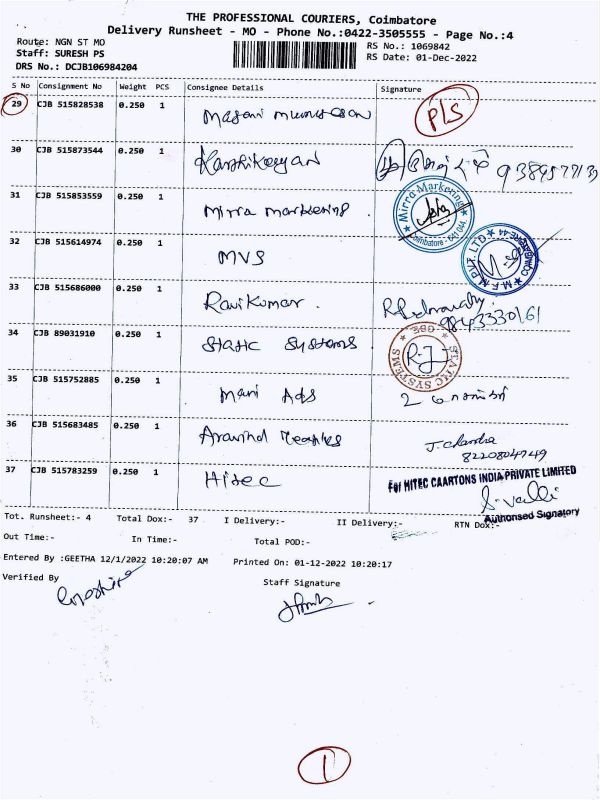 THE PROFESSIONAL COURIERS, Coimbatore
Delivery Runsheet - MO - Phone No.:0422-3505555 - Page No.:4
Route: NGN ST MO
RS No.: 1069842
Staff: SURESH PS
RS Date: 01-Dec-2022
DRS No.: DCJB106984204
S No Consignment No Weight PCS Consignee Details Signature
29 CJB 515828538 0.250 1 P/S
30 CJB 515873544 0.250 1 Karthikeyan
31 CJB 515853559 0.250 1 Mirra marketing
Mirra Marketing
Coimbatore - 641 044
32 CJB 515614974 0.250 1 MVS
33 CJB 515686000 0.250 1 Ravikumar
34 CJB 89031910 0.250 1 Static Systems R.J
STATIC SYSTEMS
35 CJB 515752885 0.250 1 Mani Ads
36 CJB 515683485 0.250 1 Aravind J. Chandra
37 CJB 515783259 0.250 1 Hitec
For HITEC CAARTONS INDIA PRIVATE LIMITED
S. Valli
Authorised Signatory
Tot. Runsheet:- 4 Total Dox:- 37 I Delivery:- II Delivery:- RTN Dox:-
Out Time:- In Time:- Total POD:-
Entered By :GEETHA 12/1/2022 10:20:07 AM Printed On: 01-12-2022 10:20:17
Verified By
Staff Signature
1